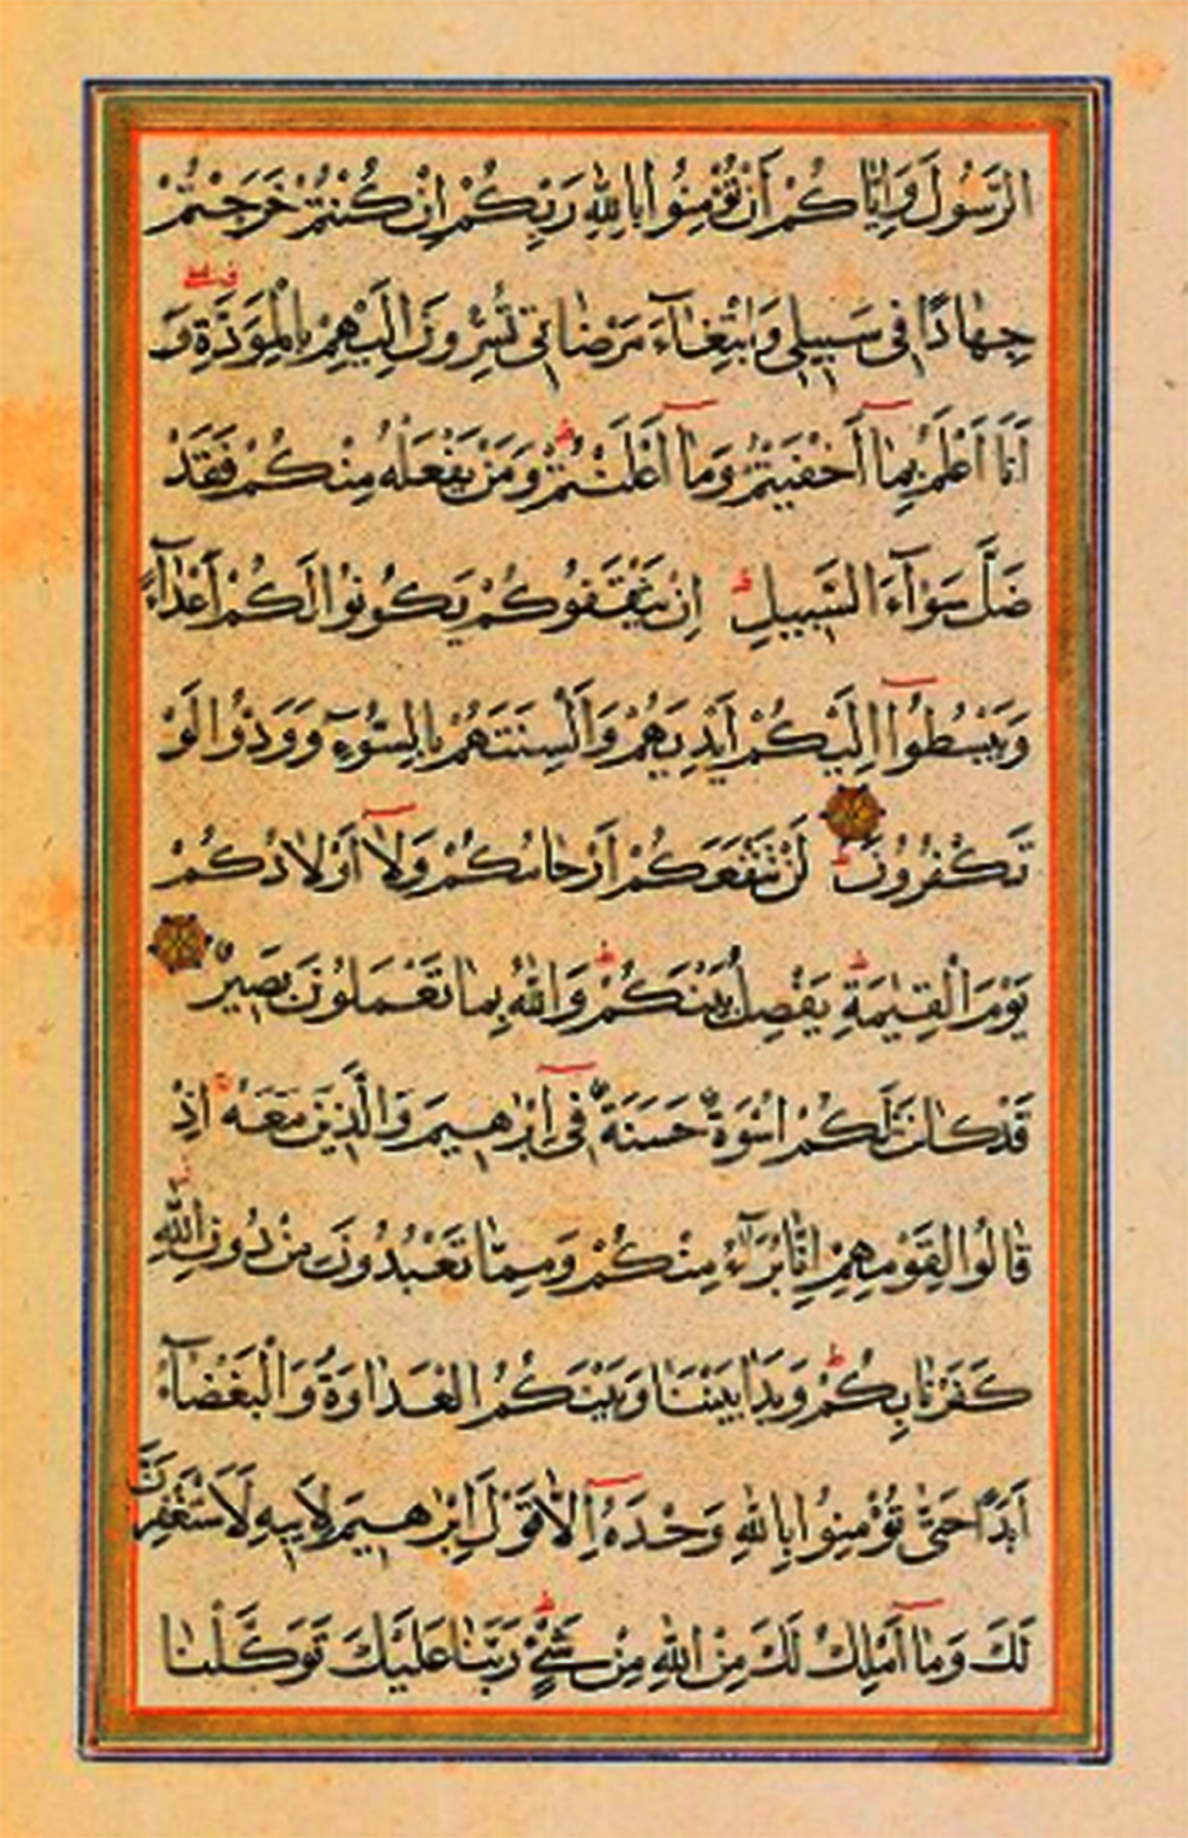 الرَّسُولَ وَاِيَّاكُمْ أَنْ تُؤْمِنُوا بِاللّٰهِ رَبِّكُمْ اِنْ كُنْتُمْ خَرَجْتُمْ
جِهَادًا فِى سَبِيلِى وَابْتِغَآءَ مَرْضَاتِى تُسِرُّونَ اِلَيْهِمْ بِالْمَوَدَّةِ وَ
أَنَا أَعْلَمُ بِمَا أَخْفَيْتُمْ وَمَا أَعْلَنْتُمْ وَمَنْ يَفْعَلْهُ مِنْكُمْ فَقَدْ
ضَلَّ سَوَآءَ السَّبِيلِ اِنْ يَثْقَفُوكُمْ يَكُونُوا لَكُمْ أَعْدَآءً
وَيَبْسُطُوا اِلَيْكُمْ أَيْدِيَهُمْ وَأَلْسِنَتَهُمْ بِالسُّوءِ وَوَدُّوا لَوْ
تَكْفُرُونَ لَنْ تَنْفَعَكُمْ أَرْحَامُكُمْ وَلَا أَوْلَادُكُمْ
يَوْمَ الْقِيٰمَةِ يَفْصِلُ بَيْنَكُمْ وَاللّٰهُ بِمَا تَعْمَلُونَ بَصِيرٌ
قَدْ كَانَتْ لَكُمْ اُسْوَةٌ حَسَنَةٌ فِى اِبْرٰهِيمَ وَالَّذِينَ مَعَهُ اِذْ
قَالُوا لِقَوْمِهِمْ اِنَّا بُرَآءُ مِنْكُمْ وَمِمَّا تَعْبُدُونَ مِنْ دُونِ اللّٰهِ
كَفَرْنَا بِكُمْ وَبَدَا بَيْنَنَا وَبَيْنَكُمُ الْعَدَاوَةُ وَالْبَغْضَآءُ
أَبَدًا حَتَّى تُؤْمِنُوا بِاللّٰهِ وَحْدَهُ اِلَّا قَوْلَ اِبْرٰهِيمَ لِأَبِيهِ لَأَسْتَغْفِرَنَّ
لَكَ وَمَا أَمْلِكُ لَكَ مِنَ اللّٰهِ مِنْ شَىْءٍ رَبَّنَا عَلَيْكَ تَوَكَّلْنَا